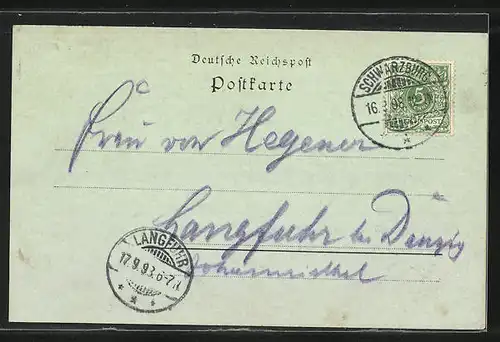 Deutsche Reichspost
Postkarte
SCHWARZBURG
16.9.98
5
Frau von Hegener
Langfuhr bei Danzig
LANGFUHR
17.9.98.6-7.N